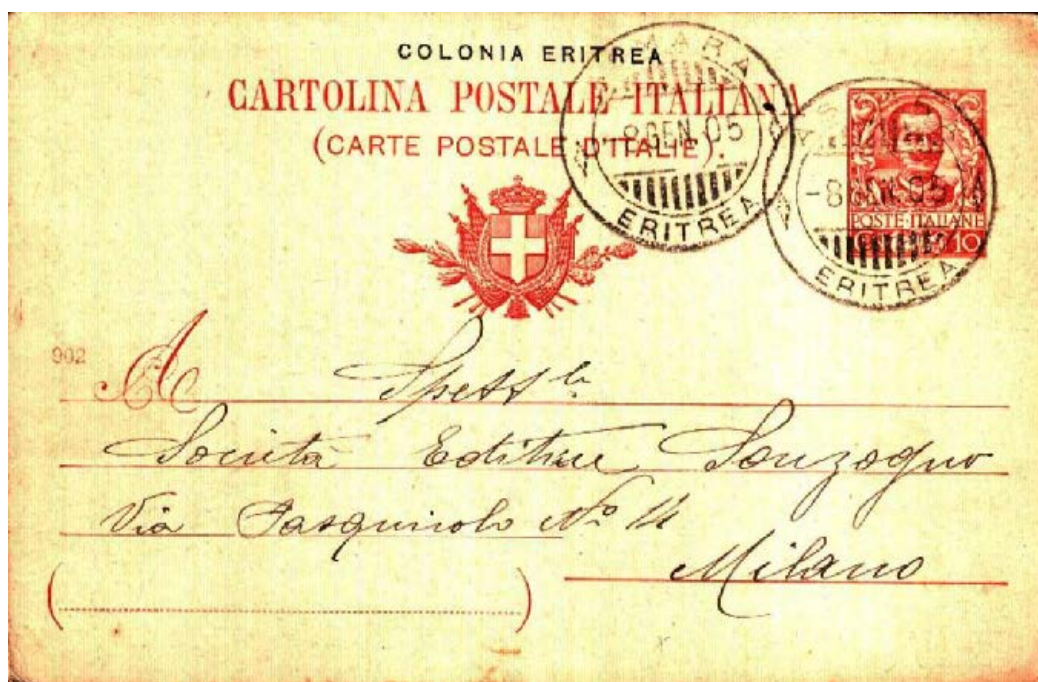 COLONIA ERITREA
CARTOLINA POSTALE ITALIANA
(CARTE POSTALE D'ITALIE).
ASMARA
-8 GEN. 05
ERITREA
ASMARA
-8 GEN. 05
ERITREA
POSTE ITALIANE
10
902
A
Spett le
Società Editrice Sonzogno
Via Pasquirolo No 14
Milano